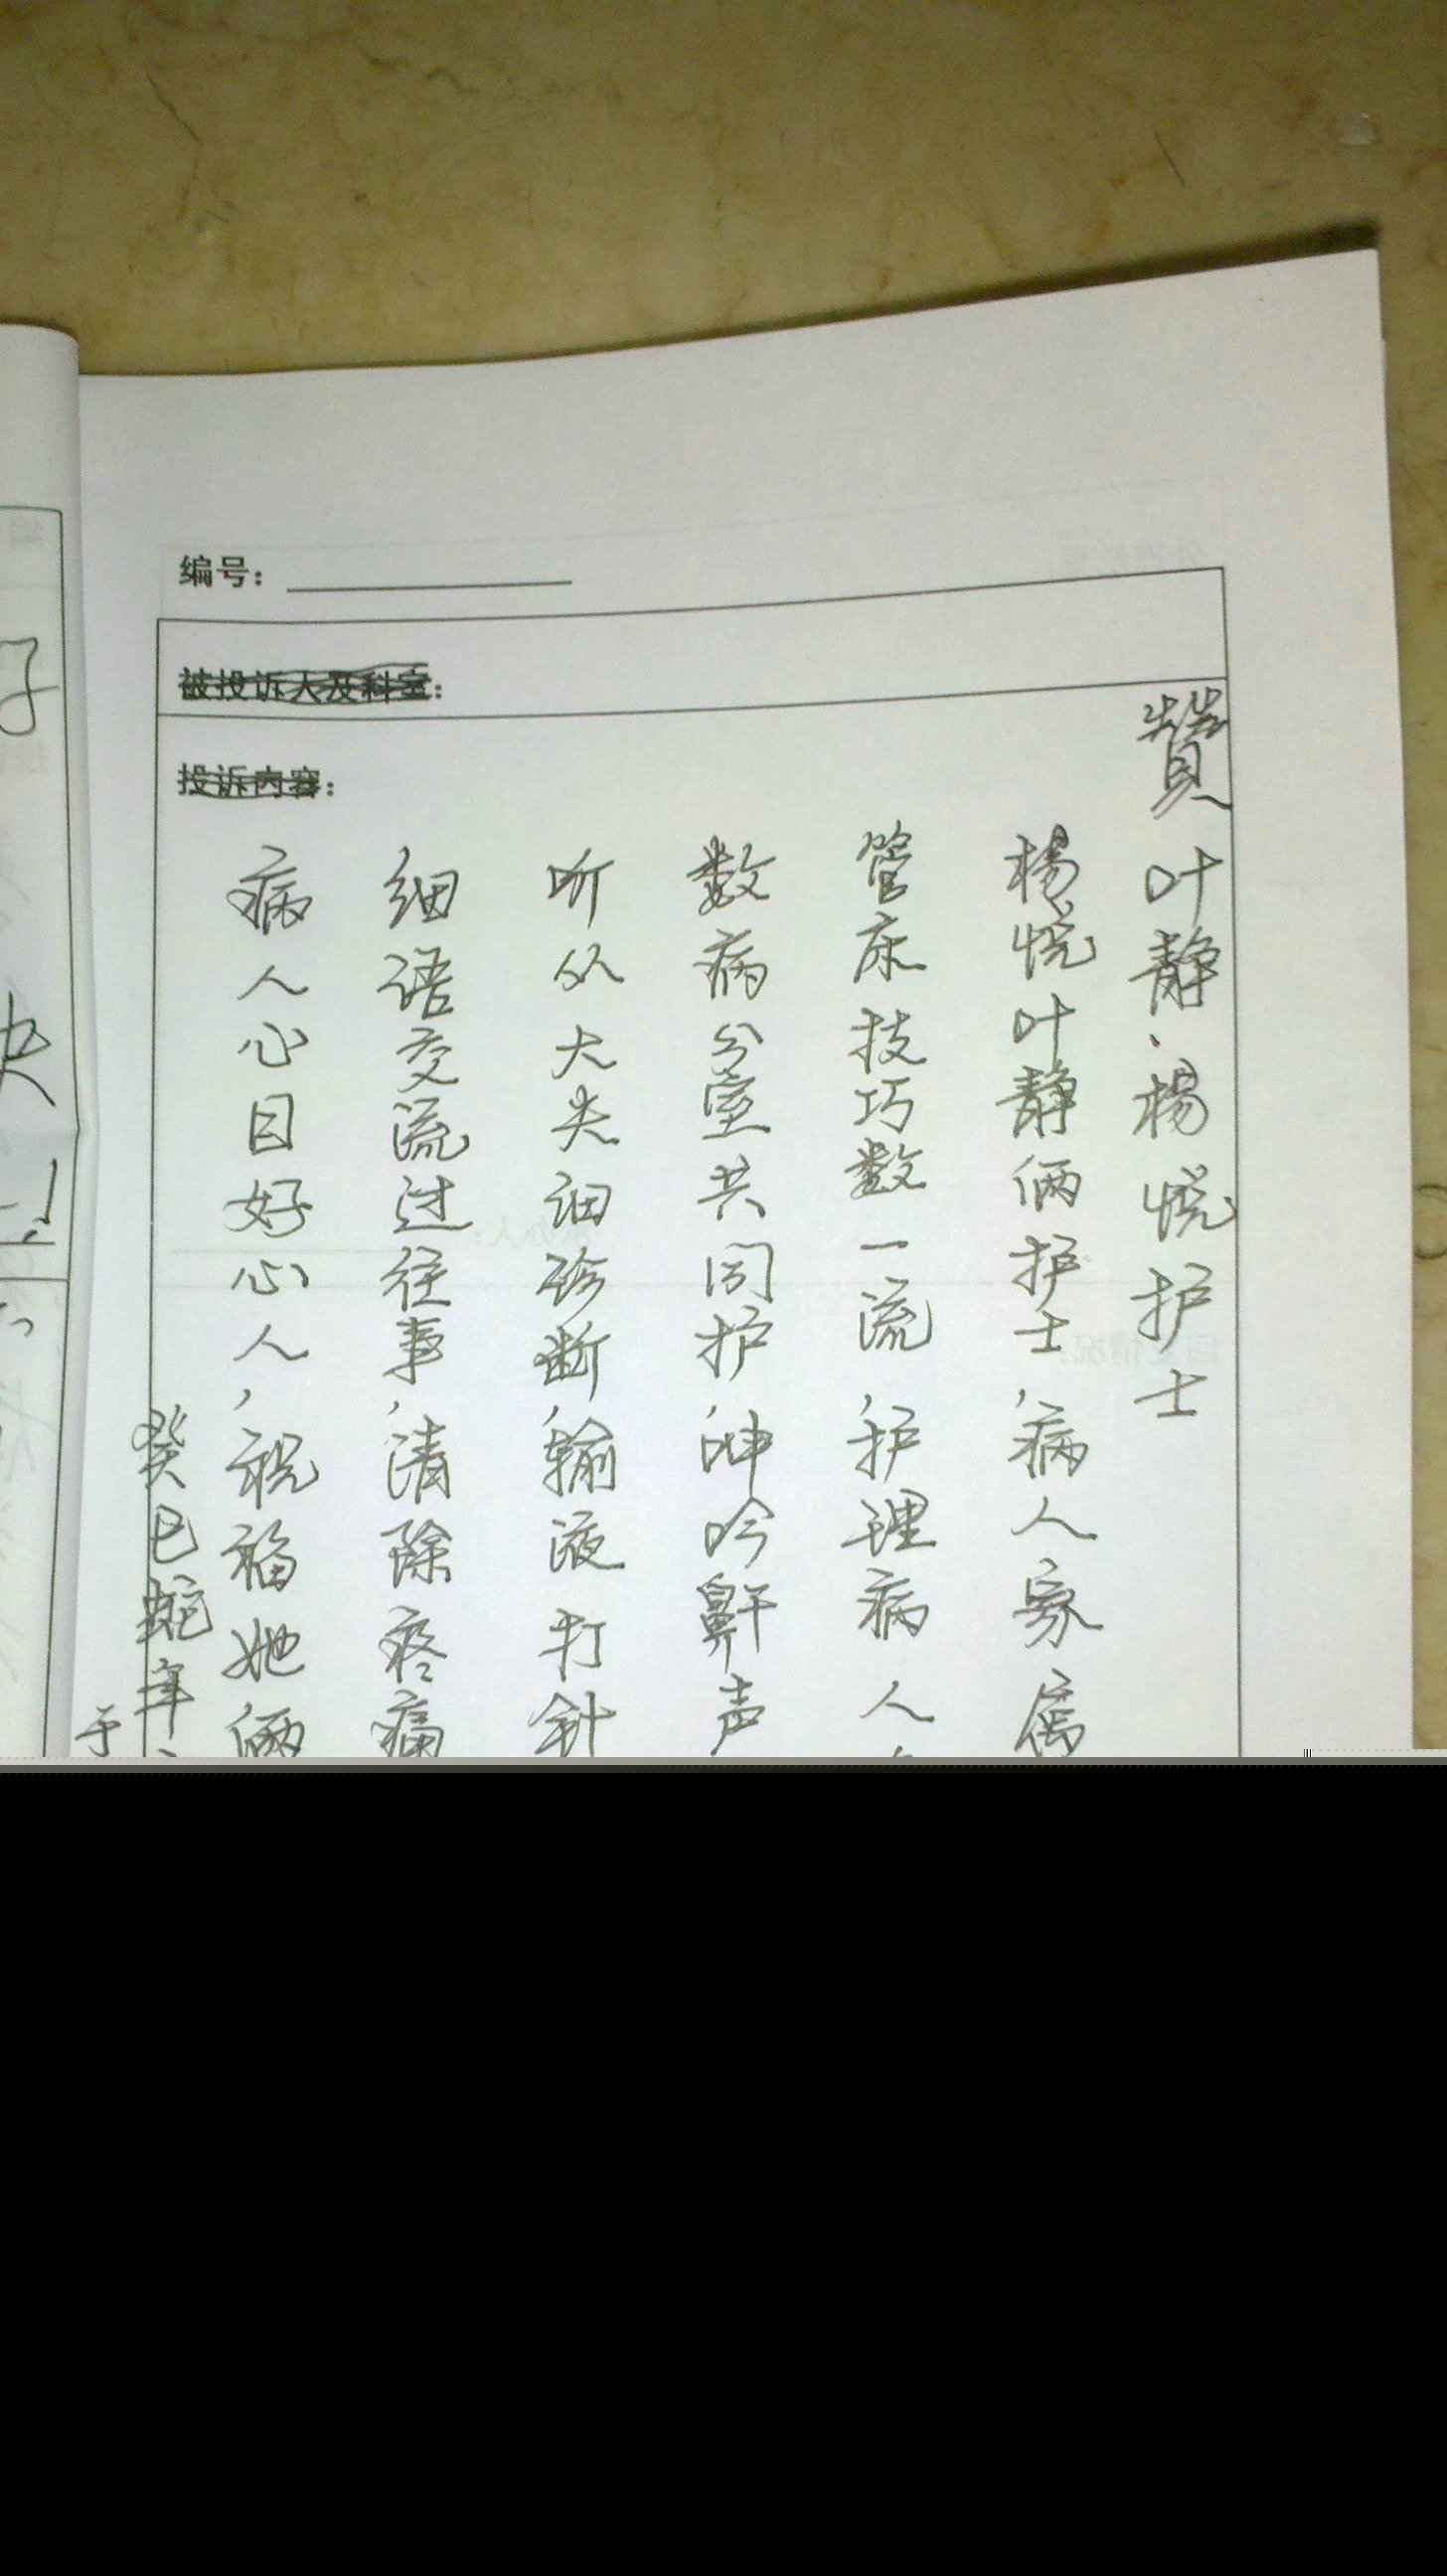 编号：
被投诉人及科室：
投诉内容：
赞叶静、杨悦护士
杨悦叶静俩护士，病人家属
管床技巧数一流，护理病人
数病分室共同护，呻吟鼾声
听从大夫细诊断，输液打针
细语交流过往事，清除疼痛
病人心目好心人，祝福她俩
癸巳蛇年
于